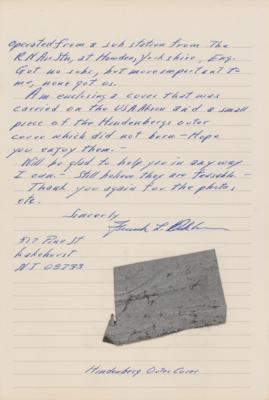 operated from a sub station from the
R.N Air Stn, at Howden, Yorkshire, Eng.
Got no subs, but more important to
me, none got us.
Am enclosing a cover that was
carried on the USS Akron and a small
piece of the Hindenbergs outer
cover which did not burn - Hope
you enjoy them. -
Will be glad to help you in any way
I can. - Still believe they are feasable. -
Thank you again for the photos
etc.
Sincerely
Frank L
517 Pine St
Lakehurst
NJ 08733
Hindenberg Outer Cover